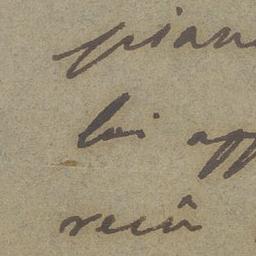 pian
lui app
recû